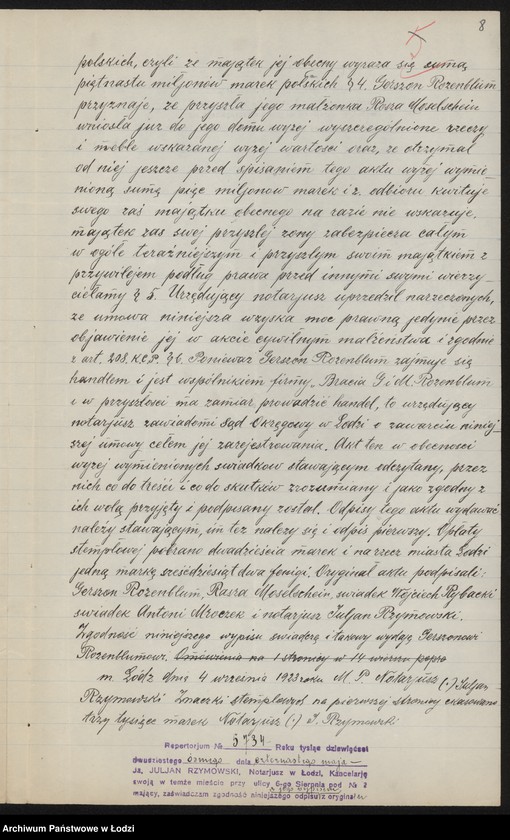 8
polskich, czyli że majątek jej obecny wyraża się sumą
piętnastu miljonów marek polskich § 4. Gerszon Rozenblum
przyznaje, że przyszła jego małżonka Rasza Moselschein
wniosła już do jego domu wyżej wyszczególnione rzeczy
i meble wskazanej wyżej wartości oraz, że otrzymał
od niej jeszcze przed spisaniem tego aktu wyżej wymie-
nioną sumę pięć miljonów marek i z odbioru kwituje
swego zaś majątku obecnego na razie nie wskazuje.
majątek zaś swej przyszłej żony zabezpiecza całym
w ogóle teraźniejszym i przyszłym swoim majątkiem z
przywilejem podług prawa przed innymi swymi wierzy-
cielamy § 5. Urzędujący notarjusz uprzedził narzeczonych,
że umowa niniejsza uzyska moc prawną jedynie przez
objawienie jej w akcie cywilnym małżeństwa i zgodnie
z art. 208. K.C.P. § 6. Ponieważ Gerszon Rozenblum zajmuje się
handlem i jest wspólnikiem firmy „Bracia G i M. Rozenblum
i w przyszłości ma zamiar prowadzić handel, to urzędujący
notarjusz zawiadomi Sąd Okręgowy w Łodzi o zawarciu niniej-
szej umowy celem jej zarejestrowania. Akt ten w obecności
wyżej wymienionych świadków stawającym odczytany, przez
nich co do treści i co do skutków zrozumiany i jako zgodny z
ich wolą przyjęty i podpisany został. Odpisy tego aktu wydawać
należy stawającym, im też należy się i odpis pierwszy. Opłaty
stemplowej pobrano dwadzieścia marek i na rzecz miasta Łodzi
jedną markę sześćdziesiąt dwa fenigi. Oryginał aktu podpisali:
Gerszon Rozenblum, Rasza Moselschein, świadek Wojciech Rybacki
świadek Antoni Mroczek i notarjusz Juljan Rzymowski.
Zgodność niniejszego wypisu świadczę i takowy wydaję Gerszonowi
Rozenblumowi. Omówienia na 1 stronicy w 14 wierszu popra
m. Łódź dnia 4 września 1923 roku M. P. Notarjusz (-) Juljan
Rzymowski Znaczki stemplowe na pierwszej stronicy skasowano
trzy tysiące marek Notarjusz (-) J. Rzymowski
Repertorjum № 5734 Roku tysiąc dziewięćset
dwudziestego ósmego dnia czternastego maja
Ja, JULJAN RZYMOWSKI, Notarjusz w Łodzi, Kancelarję
swoją w temże mieście przy ulicy 6-go Sierpnia pod № 2
mający, zaświadczam zgodność niniejszego odpisu z oryginałem
Archiwum Państwowe w Łodzi